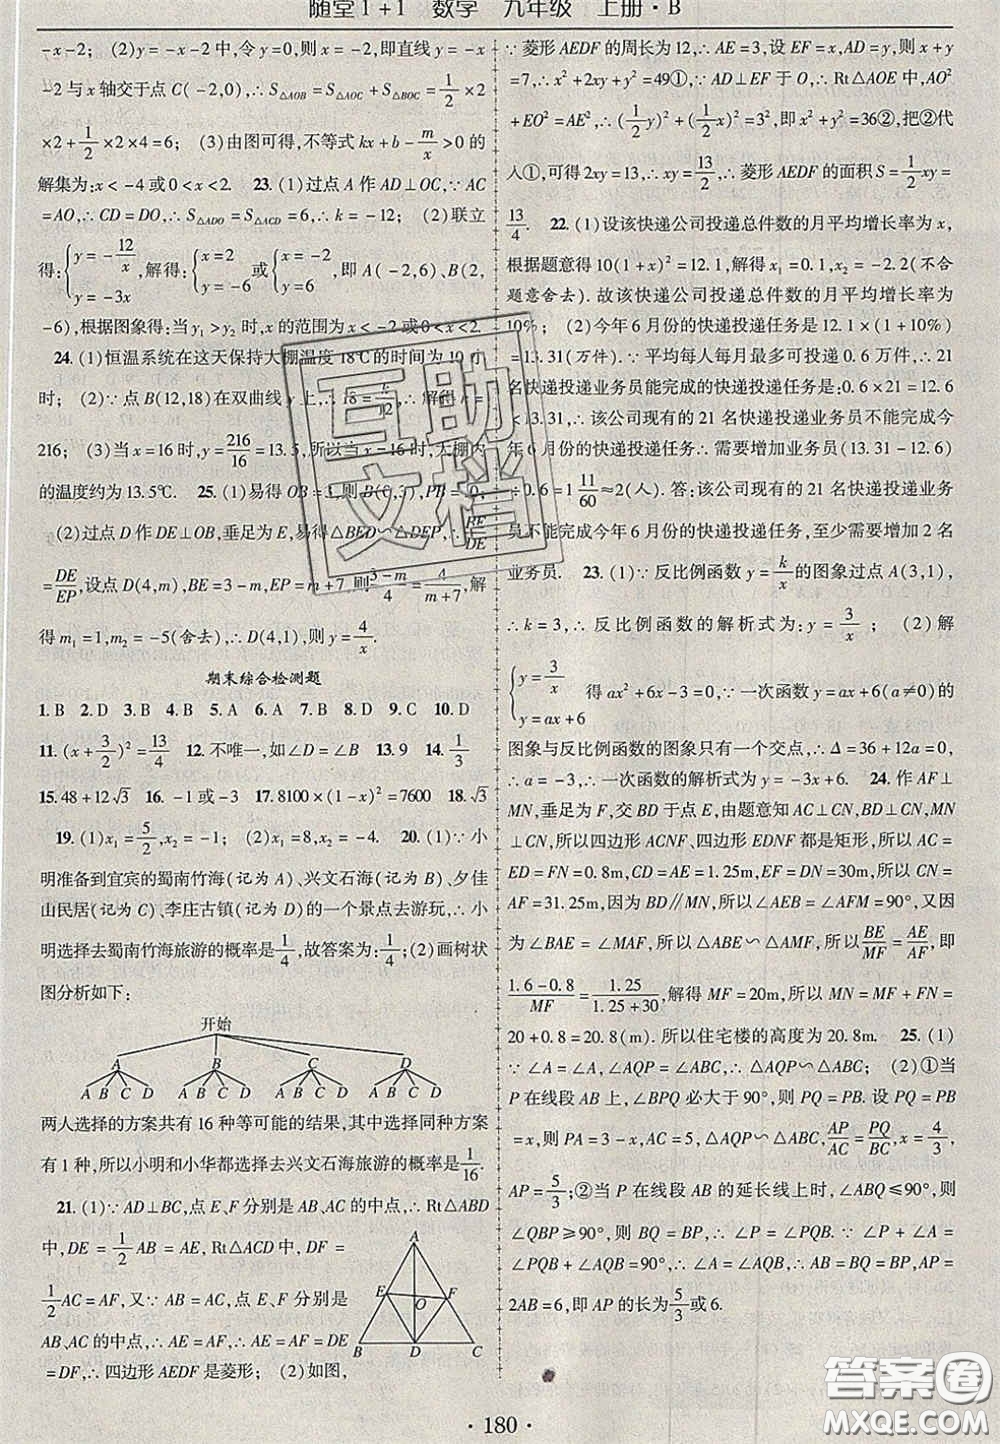 随堂1+1 数学 九年级 上册·B
-x-2; (2)y=-x-2中,令y=0,则x=-2,即直线y=-x
-2与x轴交于点C(-2,0),∴S△AOB=S△AOC+S△BOC=1/2×2
×2+1/2×2×4=6; (3)由图可得,不等式kx+b-m/x>0的
解集为:x<-4或0<x<2. 23. (1)过点A作AD⊥OC,∵AC
=AO,∴CD=DO,∴S△ADO=S△ACD=6,∴k=-12; (2)联立
得:{y=-12/x, y=-3x,解得:{x=2 y=-6或{x=-2 y=6,即A(-2,6)、B(2,
-6),根据图象得:当y₁>y₂时,x的范围为x<-2或0<x<2.
24. (1)恒温系统在这天保持大棚温度18℃的时间为10小
时; (2)∵点B(12,18)在双曲线y=上,∴18=k/12,∴解得k=
216; (3)当x=16时,y=216/16=13.5,所以当x=16时,大棚内
的温度约为13.5℃. 25. (1)易得OB=3,则B(0,3),PB=
(2)过点D作DE⊥OB,垂足为E,易得△BED∽△DEP,∴BE/DE
=DE/EP,设点D(4,m),BE=3-m,EP=m+7,则(3-m)/4=4/(m+7),解
得m₁=1,m₂=-5(舍去),∴D(4,1),则y=4/x.
期末综合检测题
1.B 2.D 3.B 4.B 5.A 6.A 7.B 8.D 9.C 10.D
11.(x+3/2)²=13/4 12.不唯一,如∠D=∠B 13.9 14.1/3
15.48+12√3 16.-1或-3 17.8100×(1-x)²=7600 18.√3
19. (1)x₁=5/2,x₂=-1; (2)x₁=8,x₂=-4. 20. (1)∵小
明准备到宜宾的蜀南竹海(记为A)、兴文石海(记为B)、夕佳
山民居(记为C)、李庄古镇(记为D)的一个景点去游玩,∴小
明选择去蜀南竹海旅游的概率是1/4,故答案为:1/4;(2)画树状
图分析如下:
开始
A B C D
A B C D A B C D A B C D A B C D
两人选择的方案共有16种等可能的结果,其中选择同种方案
有1种,所以小明和小华都选择去兴文石海旅游的概率是1/16.
21. (1)∵AD⊥BC,点E、F分别是AB、AC的中点,Rt△ABD
中,DE=1/2AB=AE,Rt△ACD中,DF=
1/2AC=AF,又∵AB=AC,点E、F分别是
AB、AC的中点,∴AE=AF,∴AE=AF=DE
=DF,∴四边形AEDF是菱形; (2)如图,
A
E O F
B D C
∵菱形AEDF的周长为12,∴AE=3,设EF=x,AD=y,则x+y
=7,∴x²+2xy+y²=49①,∵AD⊥EF于O,∴Rt△AOE中,AO²
+EO²=AE²,∴(1/2y)²+(1/2x)²=3²,即x²+y²=36②,把②代
入①,可得2xy=13,∴xy=13/2,∴菱形AEDF的面积S=1/2xy=
13/4. 22. (1)设该快递公司投递总件数的月平均增长率为x,
根据题意得10(1+x)²=12.1,解得x₁=0.1,x₂=-2.2(不合
题意舍去).故该快递公司投递总件数的月平均增长率为
10%; (2)今年6月份的快递投递任务是12.1×(1+10%)
=13.31(万件).∵平均每人每月最多可投递0.6万件,∴21
名快递投递业务员能完成的快递投递任务是:0.6×21=12.6
<13.31,∴该公司现有的21名快递投递业务员不能完成今
年6月份的快递投递任务∴需要增加业务员(13.31-12.6)
÷0.6=1 11/60≈2(人).答:该公司现有的21名快递投递业务
员不能完成今年6月份的快递投递任务,至少需要增加2名
业务员. 23. (1)∵反比例函数y=k/x的图象过点A(3,1),
∴k=3,∴反比例函数的解析式为:y=3/x; (2)解
{y=3/x y=ax+6 得ax²+6x-3=0,∵一次函数y=ax+6(a≠0)的
图象与反比例函数的图象只有一个交点,∴Δ=36+12a=0,
∴a=-3,∴一次函数的解析式为y=-3x+6. 24. 作AF⊥
MN,垂足为F,交BD于点E,由题意知AC⊥CN,BD⊥CN,MN
⊥CN,所以四边形ACNF、四边形EDNF都是矩形,所以AC=
ED=FN=0.8m,CD=AE=1.25m,EF=DN=30m,所以CN
=AF=31.25m,因为BD∥MN,所以∠AEB=∠AFM=90°,又
因为∠BAE=∠MAF,所以△ABE∽△AMF,所以BE/MF=AE/AF,即
(1.6-0.8)/MF=1.25/(1.25+30),解得MF=20m,所以MN=MF+FN=
20+0.8=20.8(m).所以住宅楼的高度为20.8m. 25. (1)
∵∠A=∠A,∠AQP=∠ABC,∴△AQP∽△ABC; (2)①当
P在线段AB上时,∠BPQ必大于90°,则PQ=PB.设PQ=PB
=x,则PA=3-x,AC=5,∵△AQP∽△ABC,AP/AC=PQ/BC,x=4/3,
AP=5/3;②当P在线段AB的延长线上时,∠AQP≤90°,则
∠QBP≥90°,则BQ=BP,∴∠P=∠PQB.∵∠P+∠A=
∠PQB+∠AQB=90°,∴∠A=∠AQB,∴AB=BQ=BP,∴AP=
2AB=6,即AP的长为5/3或6.
· 180 ·
互助文档
答案圈
MXQE.COM